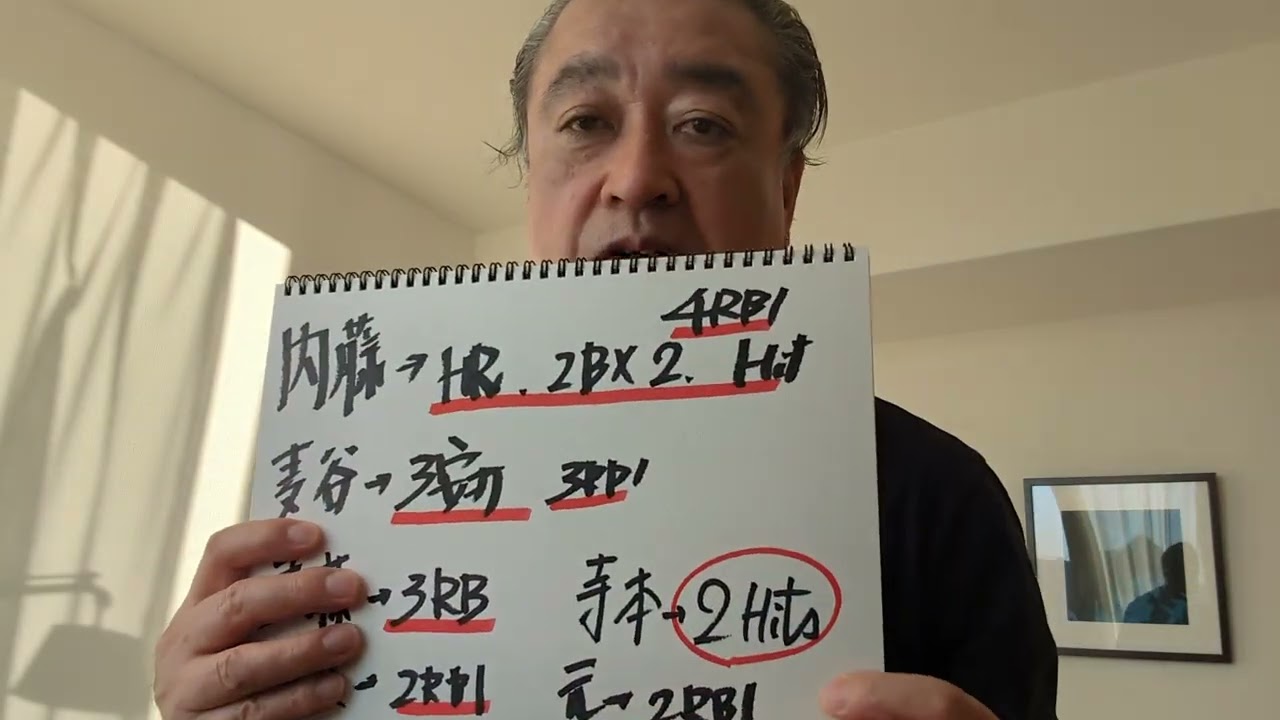 4RBI
内藤→HR. 2B×2. Hit
麦谷→3安打 3RBI
藤→3RB 寺本→2 Hits
→2RBI 元→2RBI